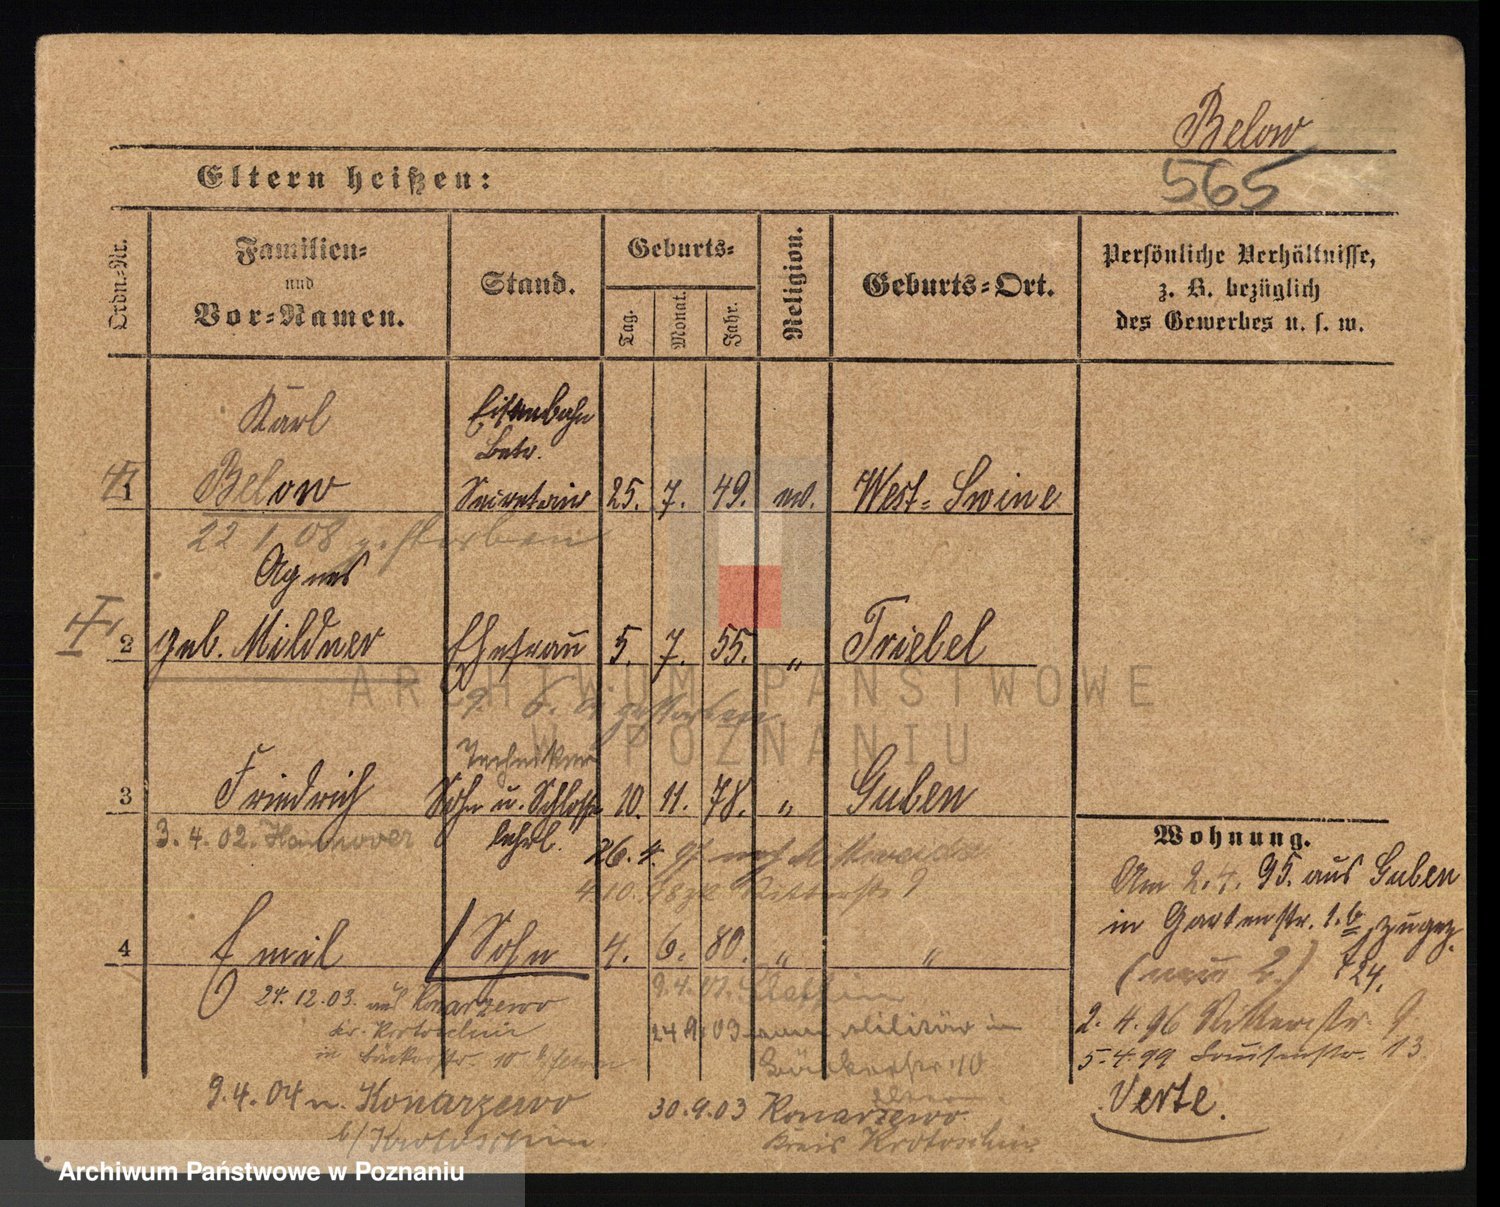 Below
565
Eltern heißen:
Ordn.-Nr.
Familien-
und
Vor-Namen.
Stand.
Geburts-
Tag.
Monat.
Jahr.
Religion.
Geburts-Ort.
Persönliche Verhältnisse,
z. B. bezüglich
des Gewerbes u. s. w.
Karl
Eisenbahn
Betr.
1 Below Secretair 25. 7. 49. ev. West-Swine
22 1 08 gestorben
Agnes
2 geb. Mildner Ehefrau 5. 7. 55. " Triebel
9. 6. gestorben
Techniker
3 Friedrich Sohn u. Schlosser 10. 11. 78. " Guben
lehrl.
3. 4. 02. Hannover
26. 4.
4.10. Ritterstr 9
4 Emil Sohn 4. 6. 80. " "
9.4.01. Stettin
24.12.03. Konarzewo
Kr. Krotoschin
24 9 03 zum Militär in
Bäckerstr. 10
9.4.04 n. Konarzewo
b/Krotoschin
30.9.03 Konarzewo
Kreis Krotoschin
Wohnung.
Am 2.4. 95. aus Guben
in Gartenstr. 1.b zugez.
(neu 2.) 724.
2. 4. 96 Ritterstr. 9
5.4.99 Louisenstr. 13
Verte.
ARCHIWUM PAŃSTWOWE
W POZNANIU
Archiwum Państwowe w Poznaniu